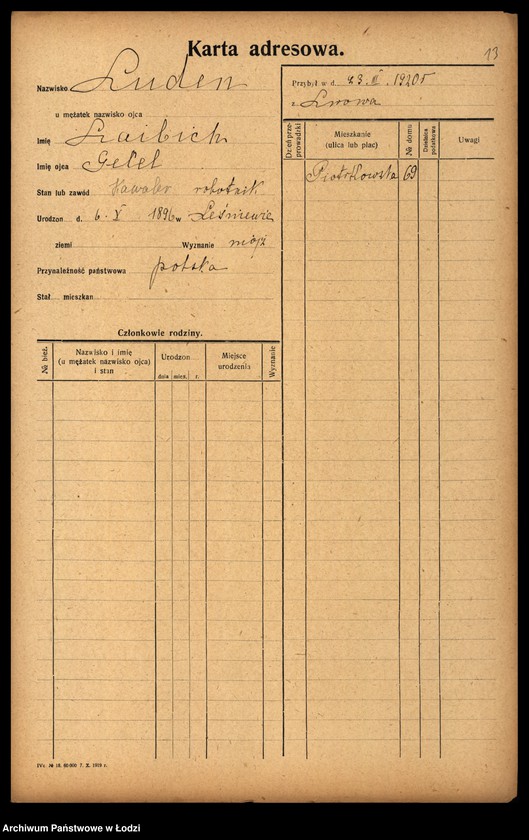 Karta adresowa.
13
Nazwisko Luden
u mężatek nazwisko ojca
Imię Laibich
Imię ojca
Stan lub zawód Kawaler robotnik
Urodzon d. 6. X 1896 w
ziemi Wyznanie mojż
Przynależność państwowa polska
Stał. mieszkan.
Przybył w d. 23. III. 1920 r
z Lwowa
Dzień przeprowadzki
Mieszkanie
(ulica lub plac)
№ domu
Dzielnica podatkowa
Uwagi
Piotrkowska 69
Członkowie rodziny.
№ bież.
Nazwisko i imię
(u mężatek nazwisko ojca)
i stan
Urodzon
dnia mies. r.
Miejsce
urodzenia
Wyznanie
IVc № 18. 60 000 7. X. 1919 r.
Archiwum Państwowe w Łodzi